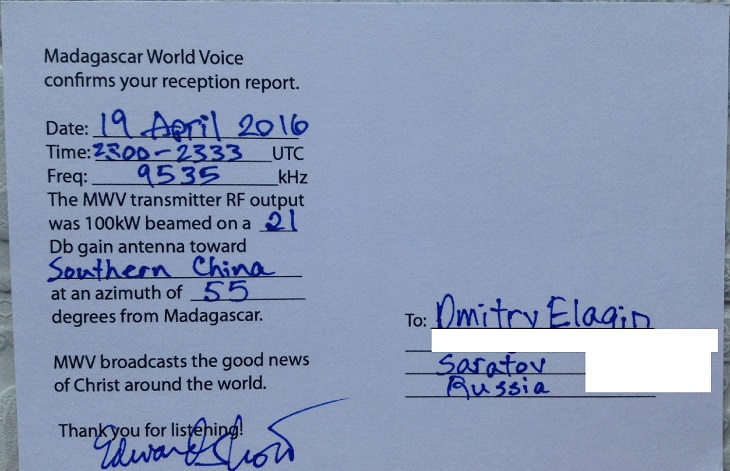 Madagascar World Voice
confirms your reception report.
Date: 19 April 2016
Time: 2300-2333 UTC
Freq: 9535 kHz
The MWV transmitter RF output
was 100kW beamed on a 21
Db gain antenna toward
Southern China
at an azimuth of 55
degrees from Madagascar.
MWV broadcasts the good news
of Christ around the world.
Thank you for listening!
To: Dmitry Elagin
Saratov
Russia